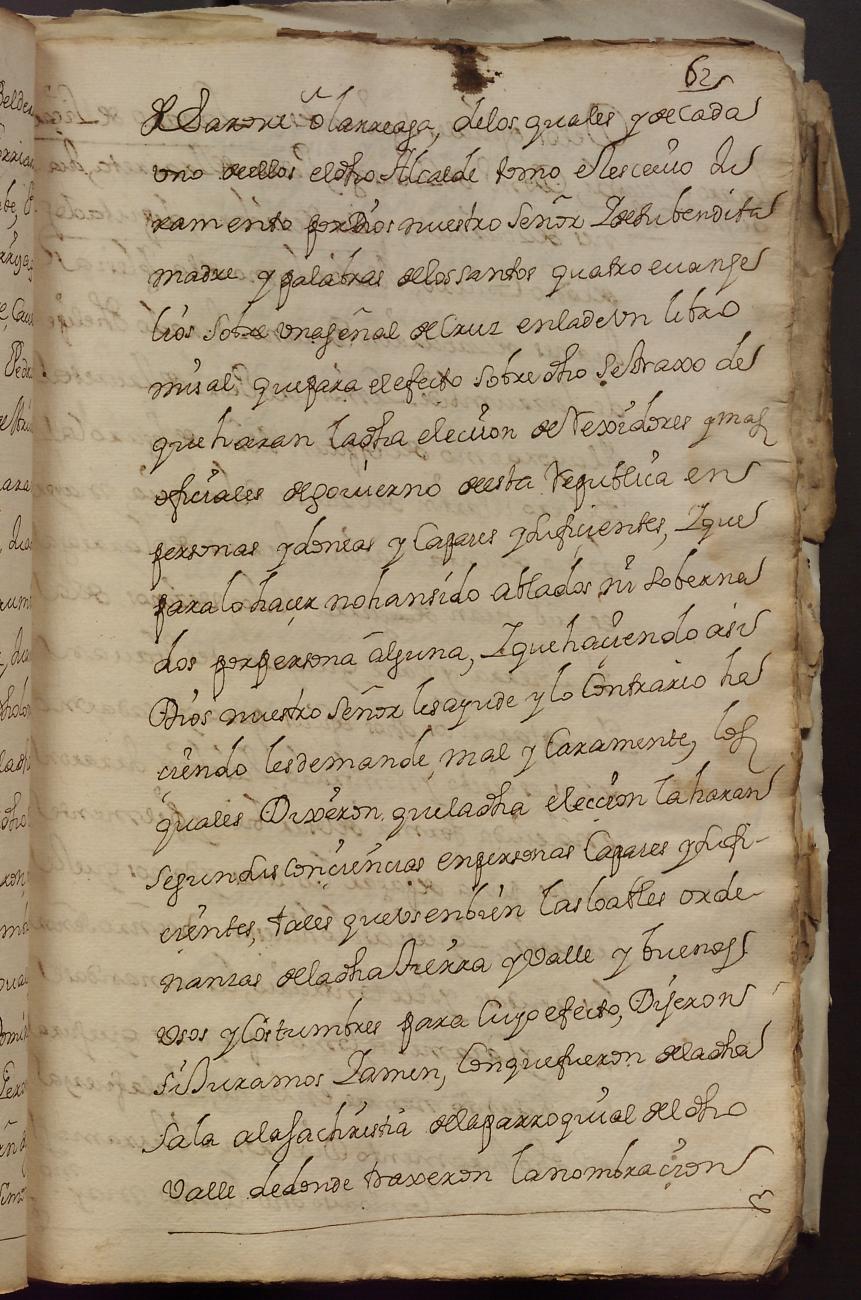 62
Olarreaga, delos quales y de Cada
vno deellos eldho Alcalde tomo e Resceuio Ju
ramento por Dios nuestro Señor Y desubendita
madre y palabras delos santos quatro euange
lios sobre vna señal de Cruz enlade vn libro
misal quepara el efecto sobredho se traxo de
que haran ladha elecion de Rexidores y mas
oficiales de gouierno deesta Republica en
personas ydoneas y Capazes y suficientes, Y que
paralo haçer nohansido ablados ni soberna
dos por persona alguna, Y que haçiendo asi
Dios nuestro Señor les ayude y lo Contrario ha
ciendo les demande mal y Caramente, los
quales Dixeron que ladha eleccion la haran
segun sus Conciencias en personas Capazes y sufi-
cientes, tales que vsen bien las loables orde-
nanzas deladha tierra y valle y buenos
vsos y Costumbres para Cuyo efecto, Dijeron
si Juramos Y amen, Con que fueron deladha
sala alasachristia dela parroquial del dho
valle dedonde traxeron la nombracion